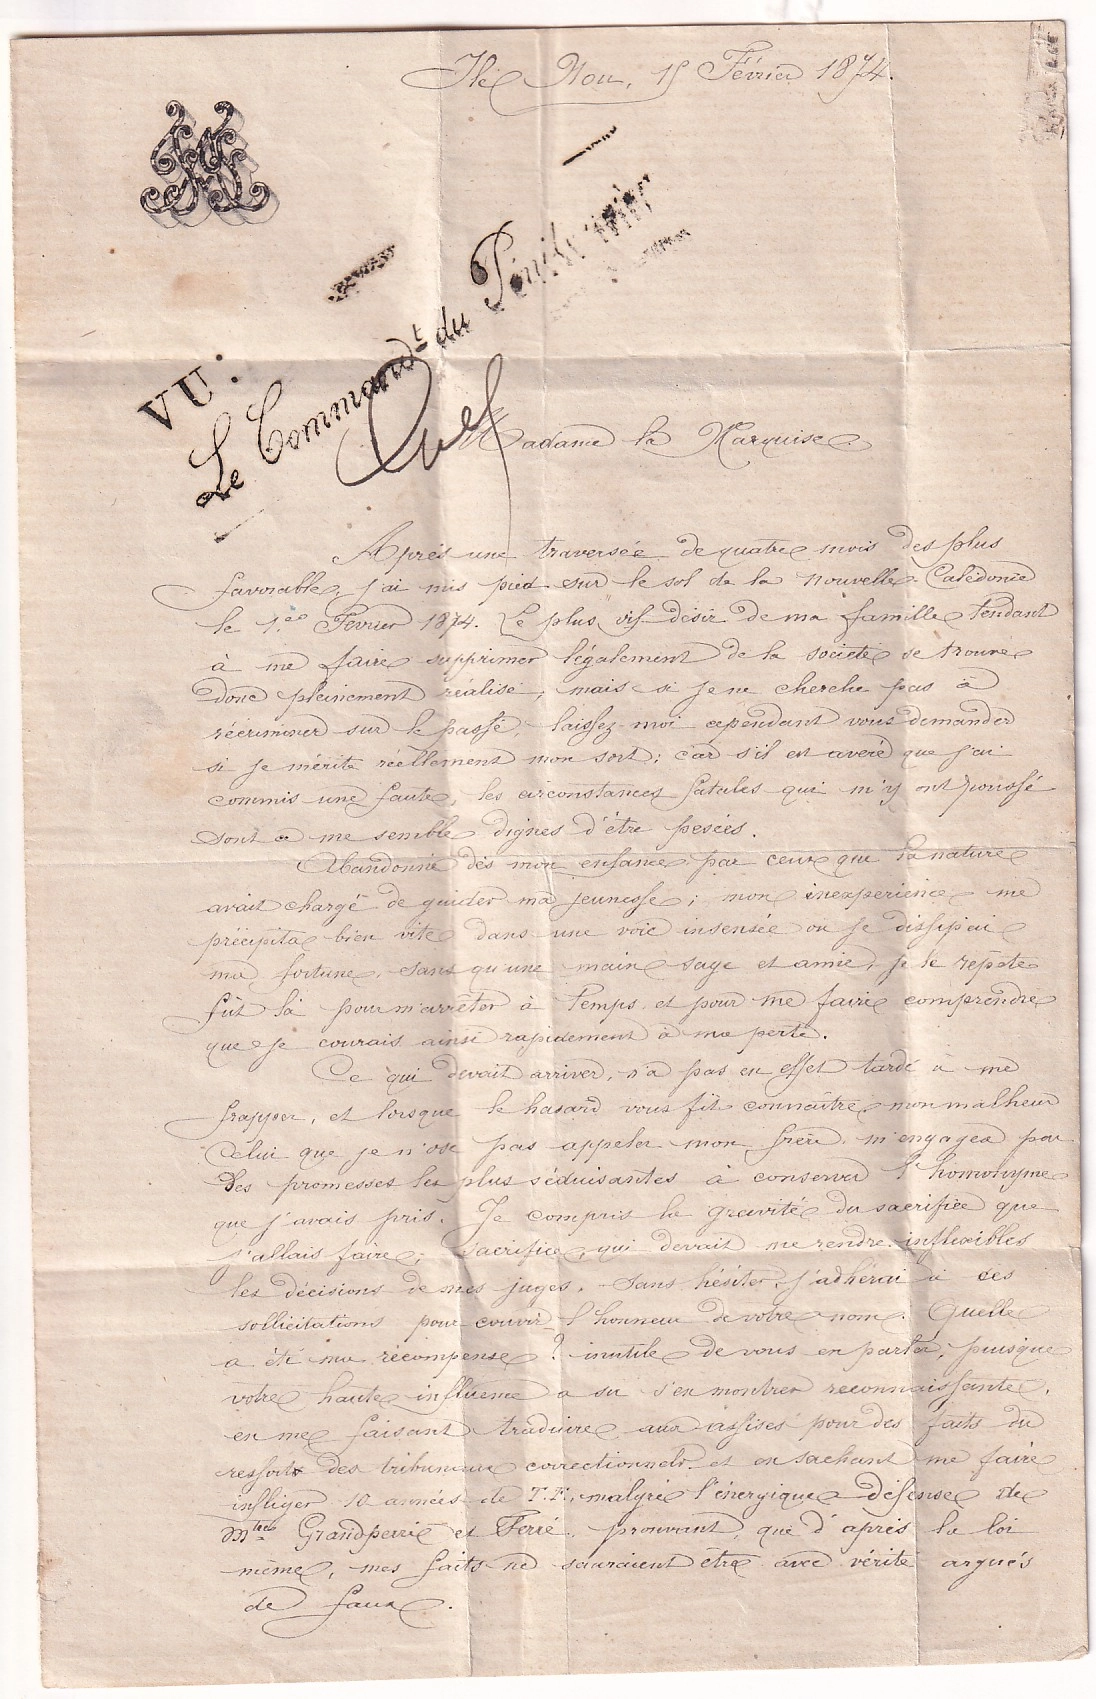 Ile Nou, 15 Février 1874.
VU:
Le Command.t du Pénitencier
Madame la Marquise
Après une traversée de quatre mois des plus
favorable, j'ai mis pied sur le sol de la Nouvelle Calédonie
le 1.er Fevrier 1874. Le plus vif désir de ma famille tendant
à me faire supprimer légalement de la société se trouve
donc pleinement réalisé; mais si je ne cherche pas à
récriminer sur le passé, laissez-moi cependant vous demander
si je mérite réellement mon sort; car s'il est averé que j'ai
commis une faute, les circonstances fatales qui m'y ont poussé
sont à me semble dignes d'être pesées.
Abandonné dès mon enfance par ceux que la nature
avait chargé de guider ma jeunesse; mon inexperience me
précipita bien vite dans une voie insensée ou je dissipai
ma fortune, sans qu'une main sage et amie, je le repète
fût là pour m'arrêter à temps et pour me faire comprendre
que je courais ainsi rapidement à ma perte.
Ce qui devait arriver, n'a pas en effet tardé à me
frapper, et lorsque le hasard vous fit connaître mon malheur
Celui que je n'ose pas appeler mon frère, m'engagea par
des promesses les plus séduisantes à conserver l'homonyme
que j'avais pris. Je compris la gravité du sacrifice que
j'allais faire; sacrifice, qui devait me rendre inflexibles
les décisions de mes juges. Sans hésiter, j'adhérai à ses
sollicitations pour couvrir l'honneur de votre nom. Quelle
a été ma récompense? inutile de vous en parler, puisque
votre haute influence a su s'en montrer reconnaissante,
en me faisant traduire aux assises pour des faits du
ressort des tribunaux correctionnels et en sachant me faire
infliger 10 années de T.F., malgré l'énergique défense de
Mtres Grandperré et Ferré, prouvant que d'après la loi
même, mes faits ne sauraient être avec vérité argués
de faux.